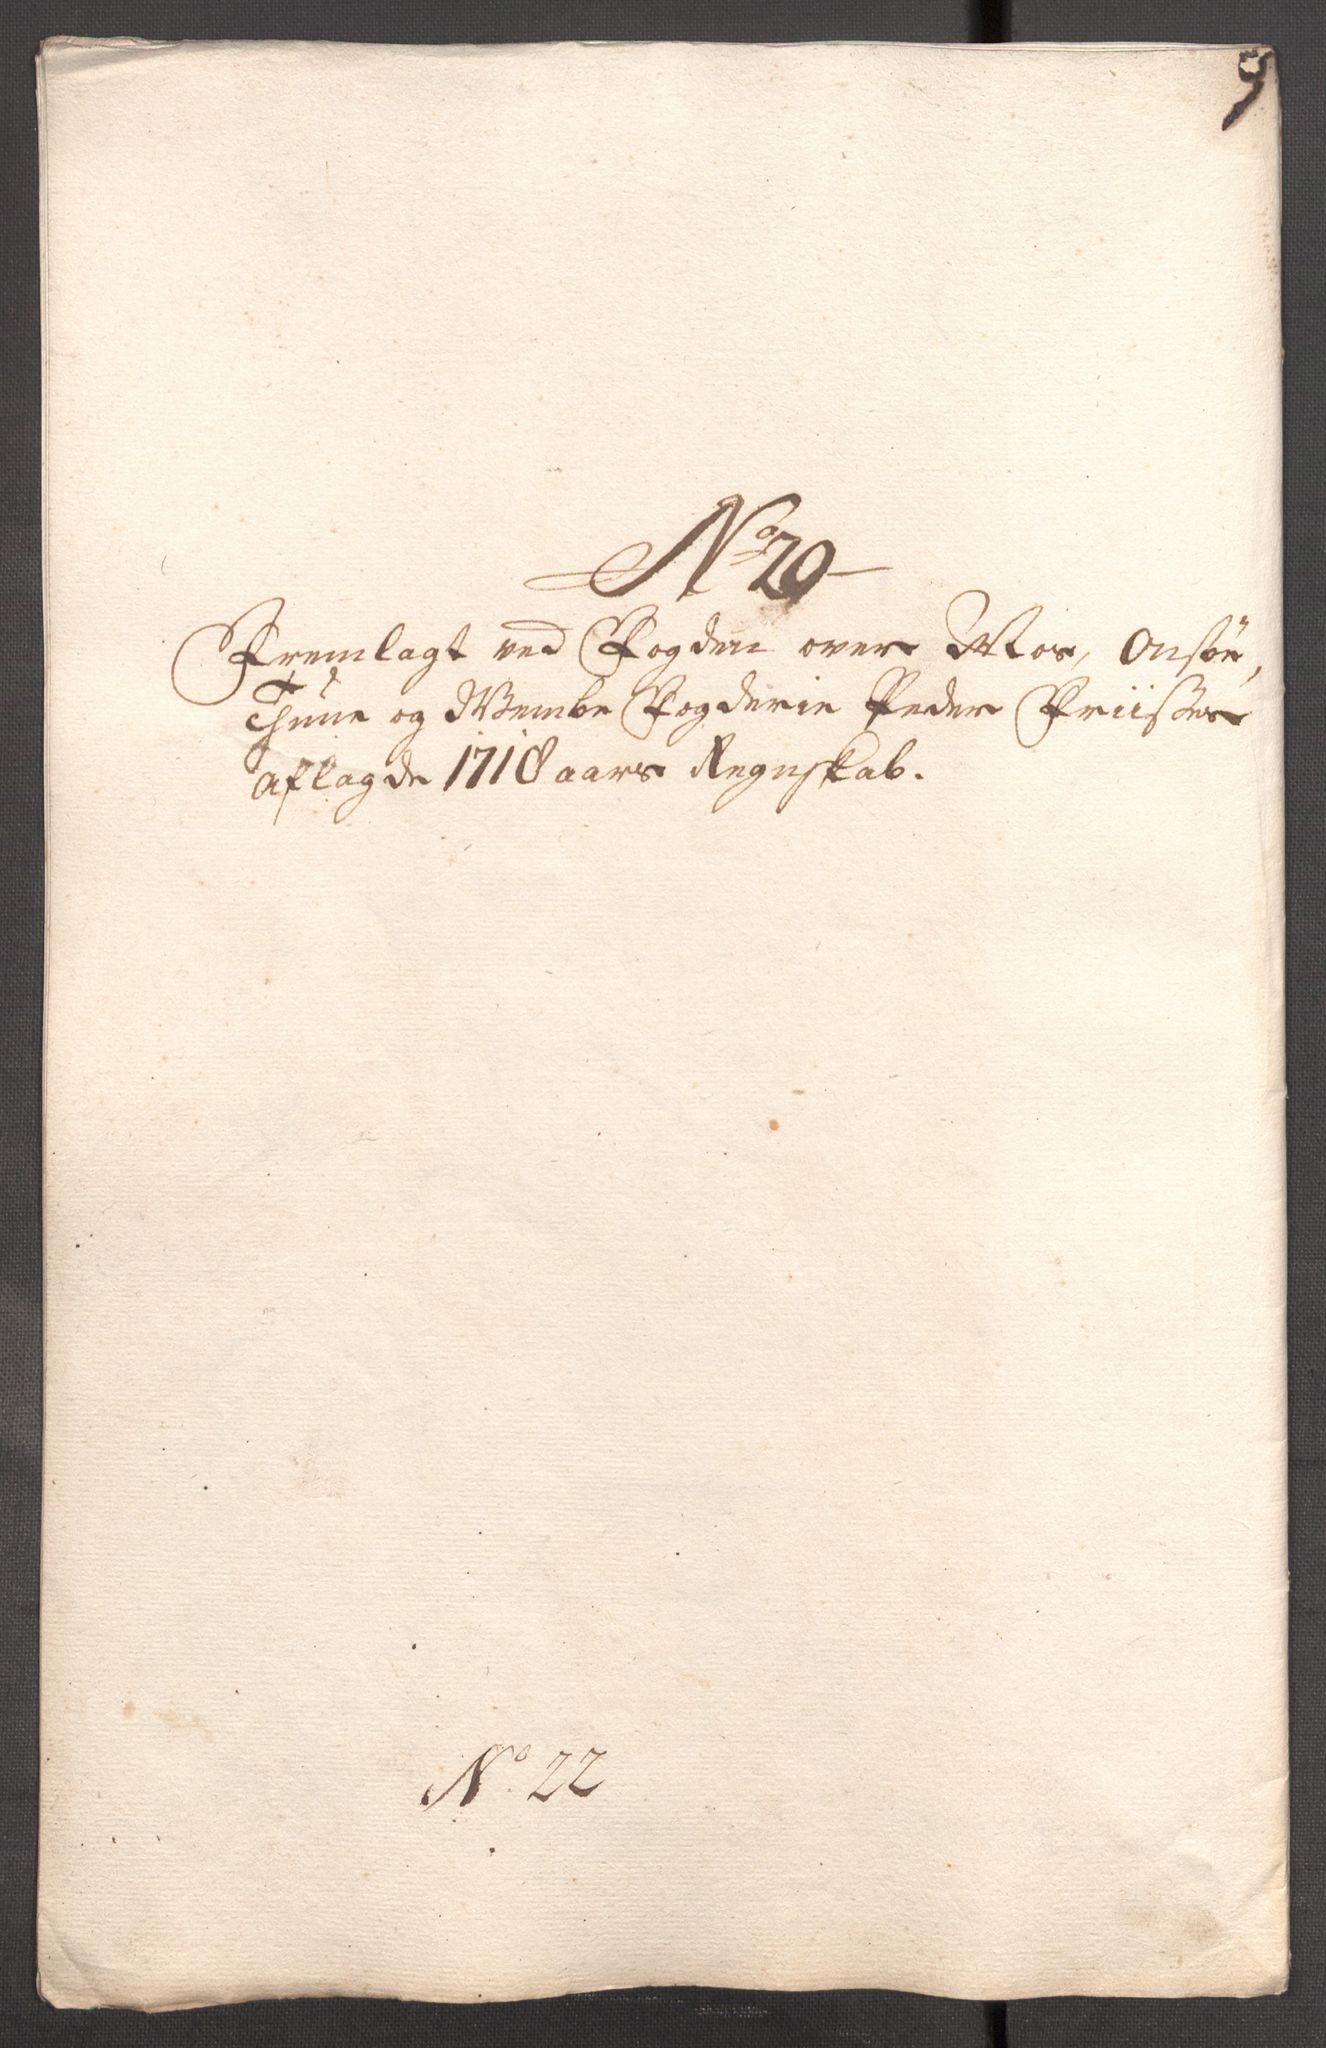 9
No 20
Fremlagt ved Fogden over Mos, Onsöe,
Thune og Wembe Fogderie Peder Friises
aflagde 1718 aars Regnskab.
No. 22